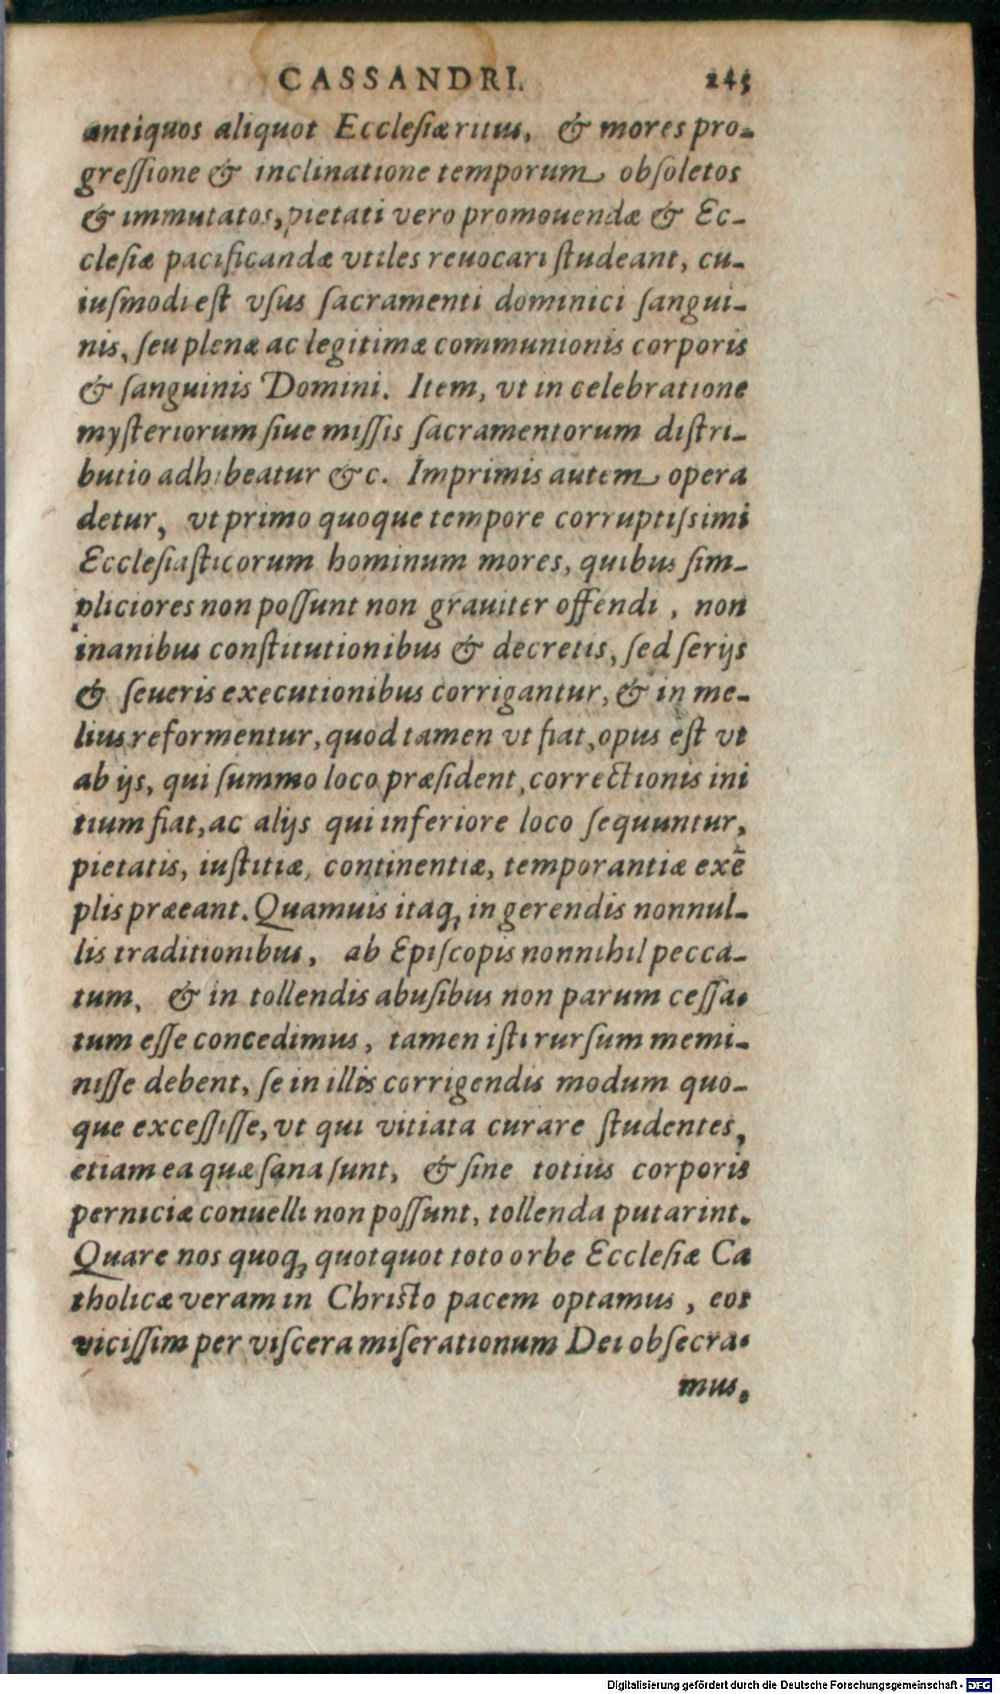 CASSANDRI. 245
antiquos aliquot Ecclesiæ ritus, & mores pro-
greſſione & inclinatione temporum obſoletos
& immutatos, pietati vero promouendæ & Ec-
cleſiæ pacificandæ vtiles reuocari ſtudeant, cu-
iuſmodi eſt vſus ſacramenti dominici ſangui-
nis, ſeu plenæ ac legitimæ communionis corporis
& ſanguinis Domini. Item, vt in celebratione
myſteriorum ſiue miſſis ſacramentorum diſtri-
butio adhibeatur &c. Imprimis autem opera
detur, vt primo quoque tempore corruptiſsimi
Eccleſiaſticorum hominum mores, quibus ſim-
pliciores non poſſunt non grauiter offendi, non
inanibus conſtitutionibus & decretis, ſed ſerijs
& ſeueris executionibus corrigantur, & in me-
lius reformentur, quod tamen vt fiat, opus eſt vt
ab ijs, qui ſummo loco præſident, correctionis ini
tium fiat, ac alijs qui inferiore loco ſequuntur,
pietatis, iuſtitiæ, continentiæ, temporantiæ exẽ
plis præeant. Quamuis itaq; in gerendis nonnul-
lis traditionibus, ab Epiſcopis nonnihil pecca-
tum, & in tollendis abuſibus non parum ceſſa-
tum eſſe concedimus, tamen iſti rurſum memi-
niſſe debent, ſe in illis corrigendis modum quo-
que exceſſiſſe, vt qui vitiata curare ſtudentes,
etiam ea quæ ſana ſunt, & ſine totius corporis
perniciæ conuelli non poſſunt, tollenda putarint.
Quare nos quoq; quotquot toto orbe Eccleſiæ Ca
tholicæ veram in Chriſto pacem optamus, eos
viciſſim per viſcera miſerationum Dei obſecra-
mus,
Digitalisierung gefördert durch die Deutsche Forschungsgemeinschaft - DFG